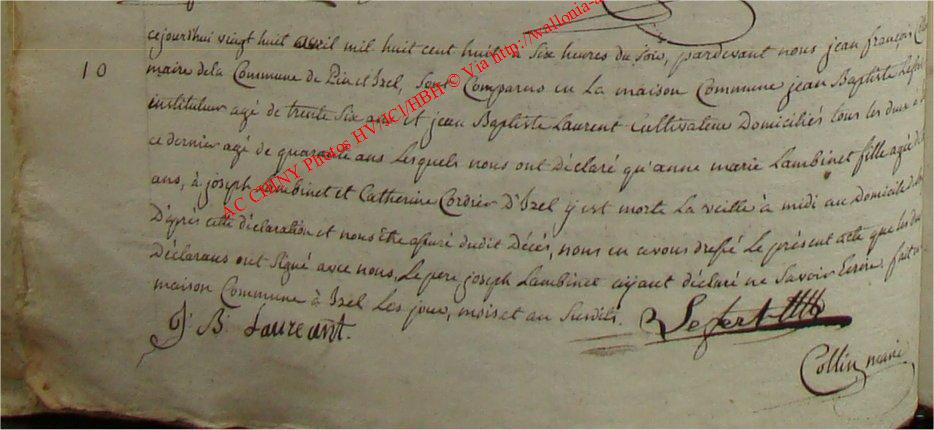 cejourd'hui vingt huit avril mil huit cent huit à six heures du soir, pardevant nous jean françois
10
maire dela Commune de Pin et Izel, sont Comparus en La maison Commune jean Baptiste Lefert
instituteur agé de trente six ans et jean Baptiste Laurent Cultivateur Domiciliés tous les deux
ce dernier agé de quarante ans Lesquels nous ont Déclaré qu'anne marie Lambinet fille agée de
ans, à joseph Lambinet et Catherine Cordier D'Izel y est morte La veille à midi au Domicile
D'après cette déclaration et nous être assuré dudit Décès, nous en avons dressé Le présent acte que les deux
Déclarans ont signé avec nous, Le pere joseph Lambinet ayant déclaré ne savoir Ecrire, fait
maison Commune à Izel Les jour, mois et an susdits.
J. B. Laureant.
Lefert
Collin maire
AC CHINY Photos HV/JCJ/HBH © Via http://wallonia-a